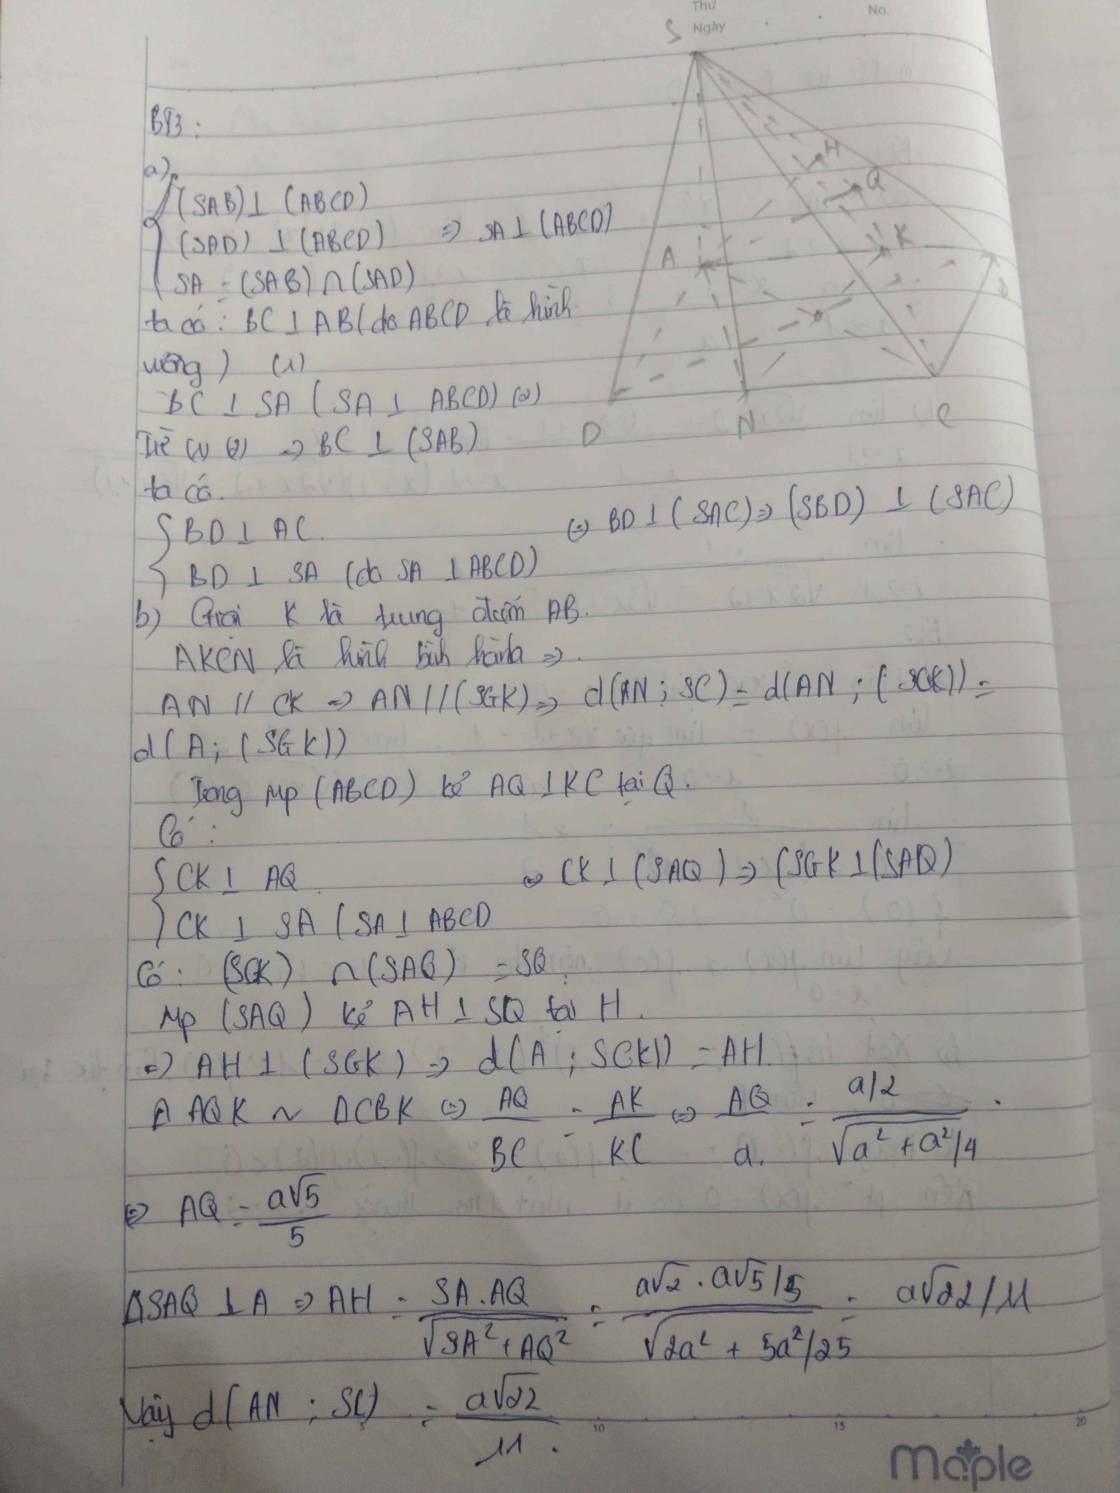 Thứ
Ngày
No.
S
H
Q
A
K
B
D
N
C
Bài 3:
a)
(SAB) ⊥ (ABCD)
(SAD) ⊥ (ABCD) => SA ⊥ (ABCD)
SA = (SAB) ∩ (SAD)
ta có: BC ⊥ AB (do ABCD là hình
vuông) (1)
BC ⊥ SA (SA ⊥ ABCD) (2)
Từ (1) (2) => BC ⊥ (SAB)
ta có.
BD ⊥ AC. => BD ⊥ (SAC) => (SBD) ⊥ (SAC)
BD ⊥ SA (do SA ⊥ ABCD)
b) Gọi K là trung điểm AB.
AKCN là hình bình hành =>.
AN // CK => AN // (SCK) => d(AN; SC) = d(AN; (SCK)) =
d(A; (SCK))
Trong mp (ABCD) kẻ AQ ⊥ KC tại Q.
Có:
CK ⊥ AQ => CK ⊥ (SAQ) => (SCK ⊥ (SAQ)
CK ⊥ SA (SA ⊥ ABCD
Có: (SCK) ∩ (SAQ) = SQ.
Mp (SAQ) kẻ AH ⊥ SQ tại H.
=> AH ⊥ (SCK) => d(A; SCK)) = AH.
Δ AQK ~ ΔCBK <=> AQ/BC = AK/KC <=> AQ/a. = (a/2)/√(a² + a²/4) .
<=> AQ = a√5/5
ΔSAQ ⊥ A => AH = SA.AQ/√(SA² + AQ²) = (a√2 . a√5/5)/√(2a² + 5a²/25) = a√22/11
Vậy d(AN; SC) = a√22/11.
5 10 15 20
maple